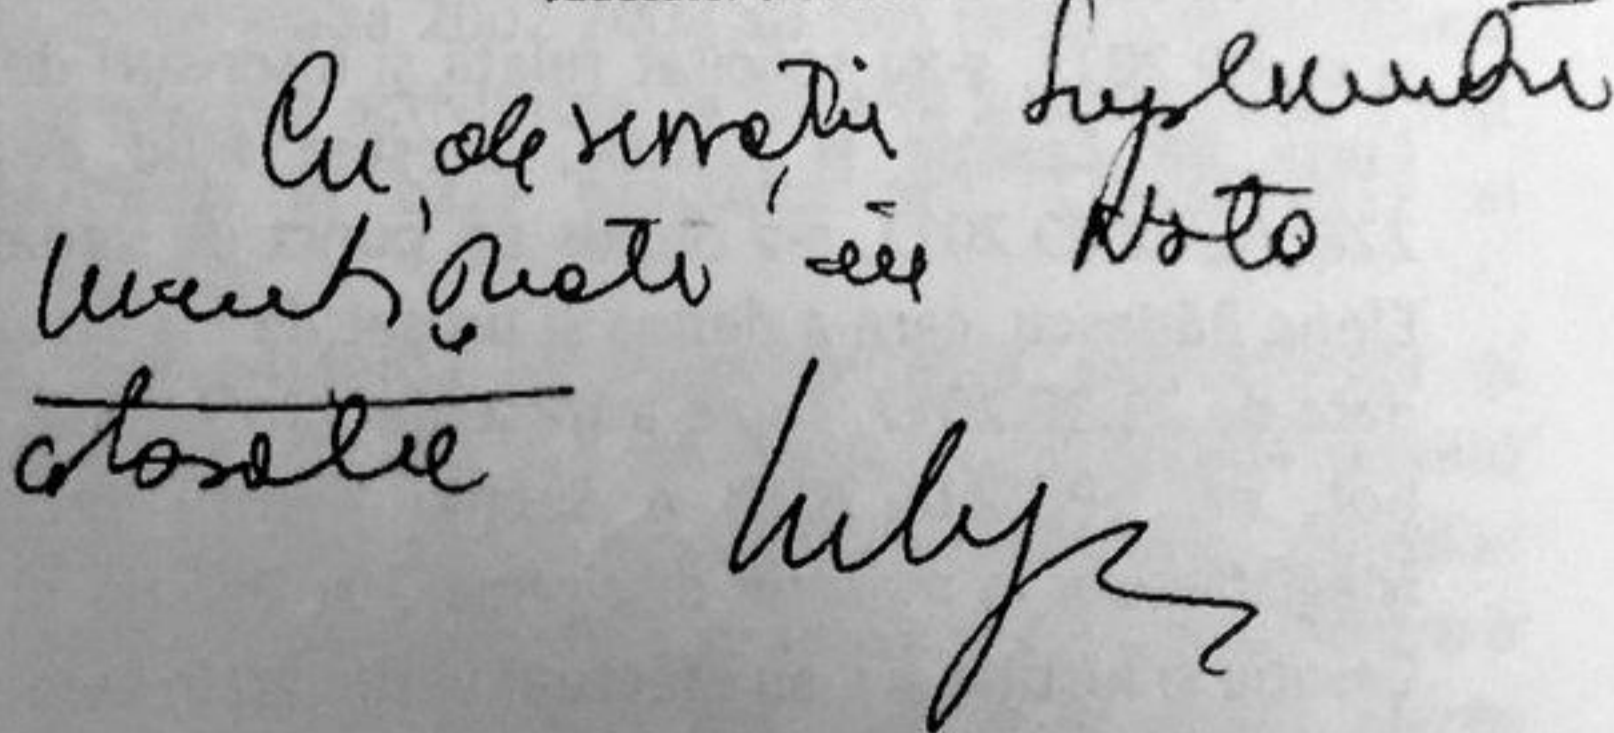 Cu observații suplimentare
menționate în Nota
atașată